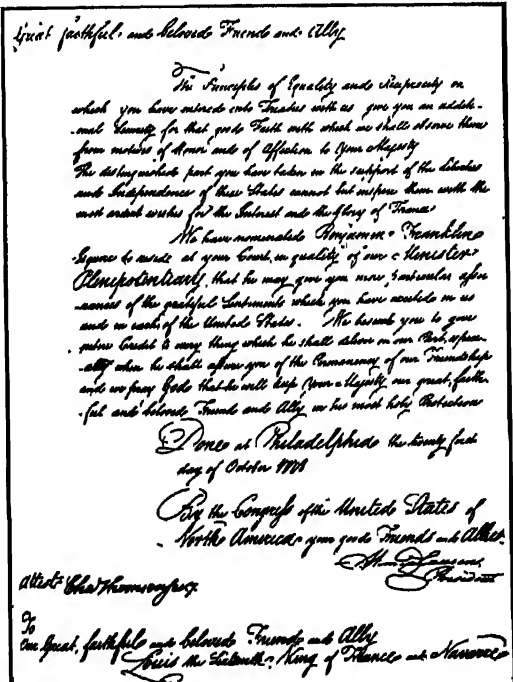 Great faithful and beloved Friend and Ally
The Principles of Equality and Reciprocity on
which you have entered into Treaties with us give you an addit-
-ional Security for that good Faith with which we shall observe them
from motives of Honor and of Affection to your Majesty
The distinguished part you have taken in the support of the Liberties
and Independence of these States cannot but inspire them with the
most ardent wishes for the Interest and the Glory of France
We have nominated Benjamin Franklin
Esquire to reside at your Court in quality of our Minister
Plenipotentiary, that he may give you more particular assu-
-rances of the grateful Sentiments which you have excited in us
and in each of the United States. We beseech you to give
entire Credit to every thing which he shall deliver on our Part, especi-
-ally when he shall assure you of the Permanency of our Friendship
and we pray God that he will keep your Majesty our great, faith-
-ful and beloved Friend and Ally in his most holy Protection
Done at Philadelphia the twenty first
day of October 1778
By the Congress of the United States of
North America your good Friends and Allies.
Henry Laurens
President
Attest Cha Thomson secy
To
Our Great, faithful and beloved Friend and Ally
Louis the Sixteenth King of France and Navarre